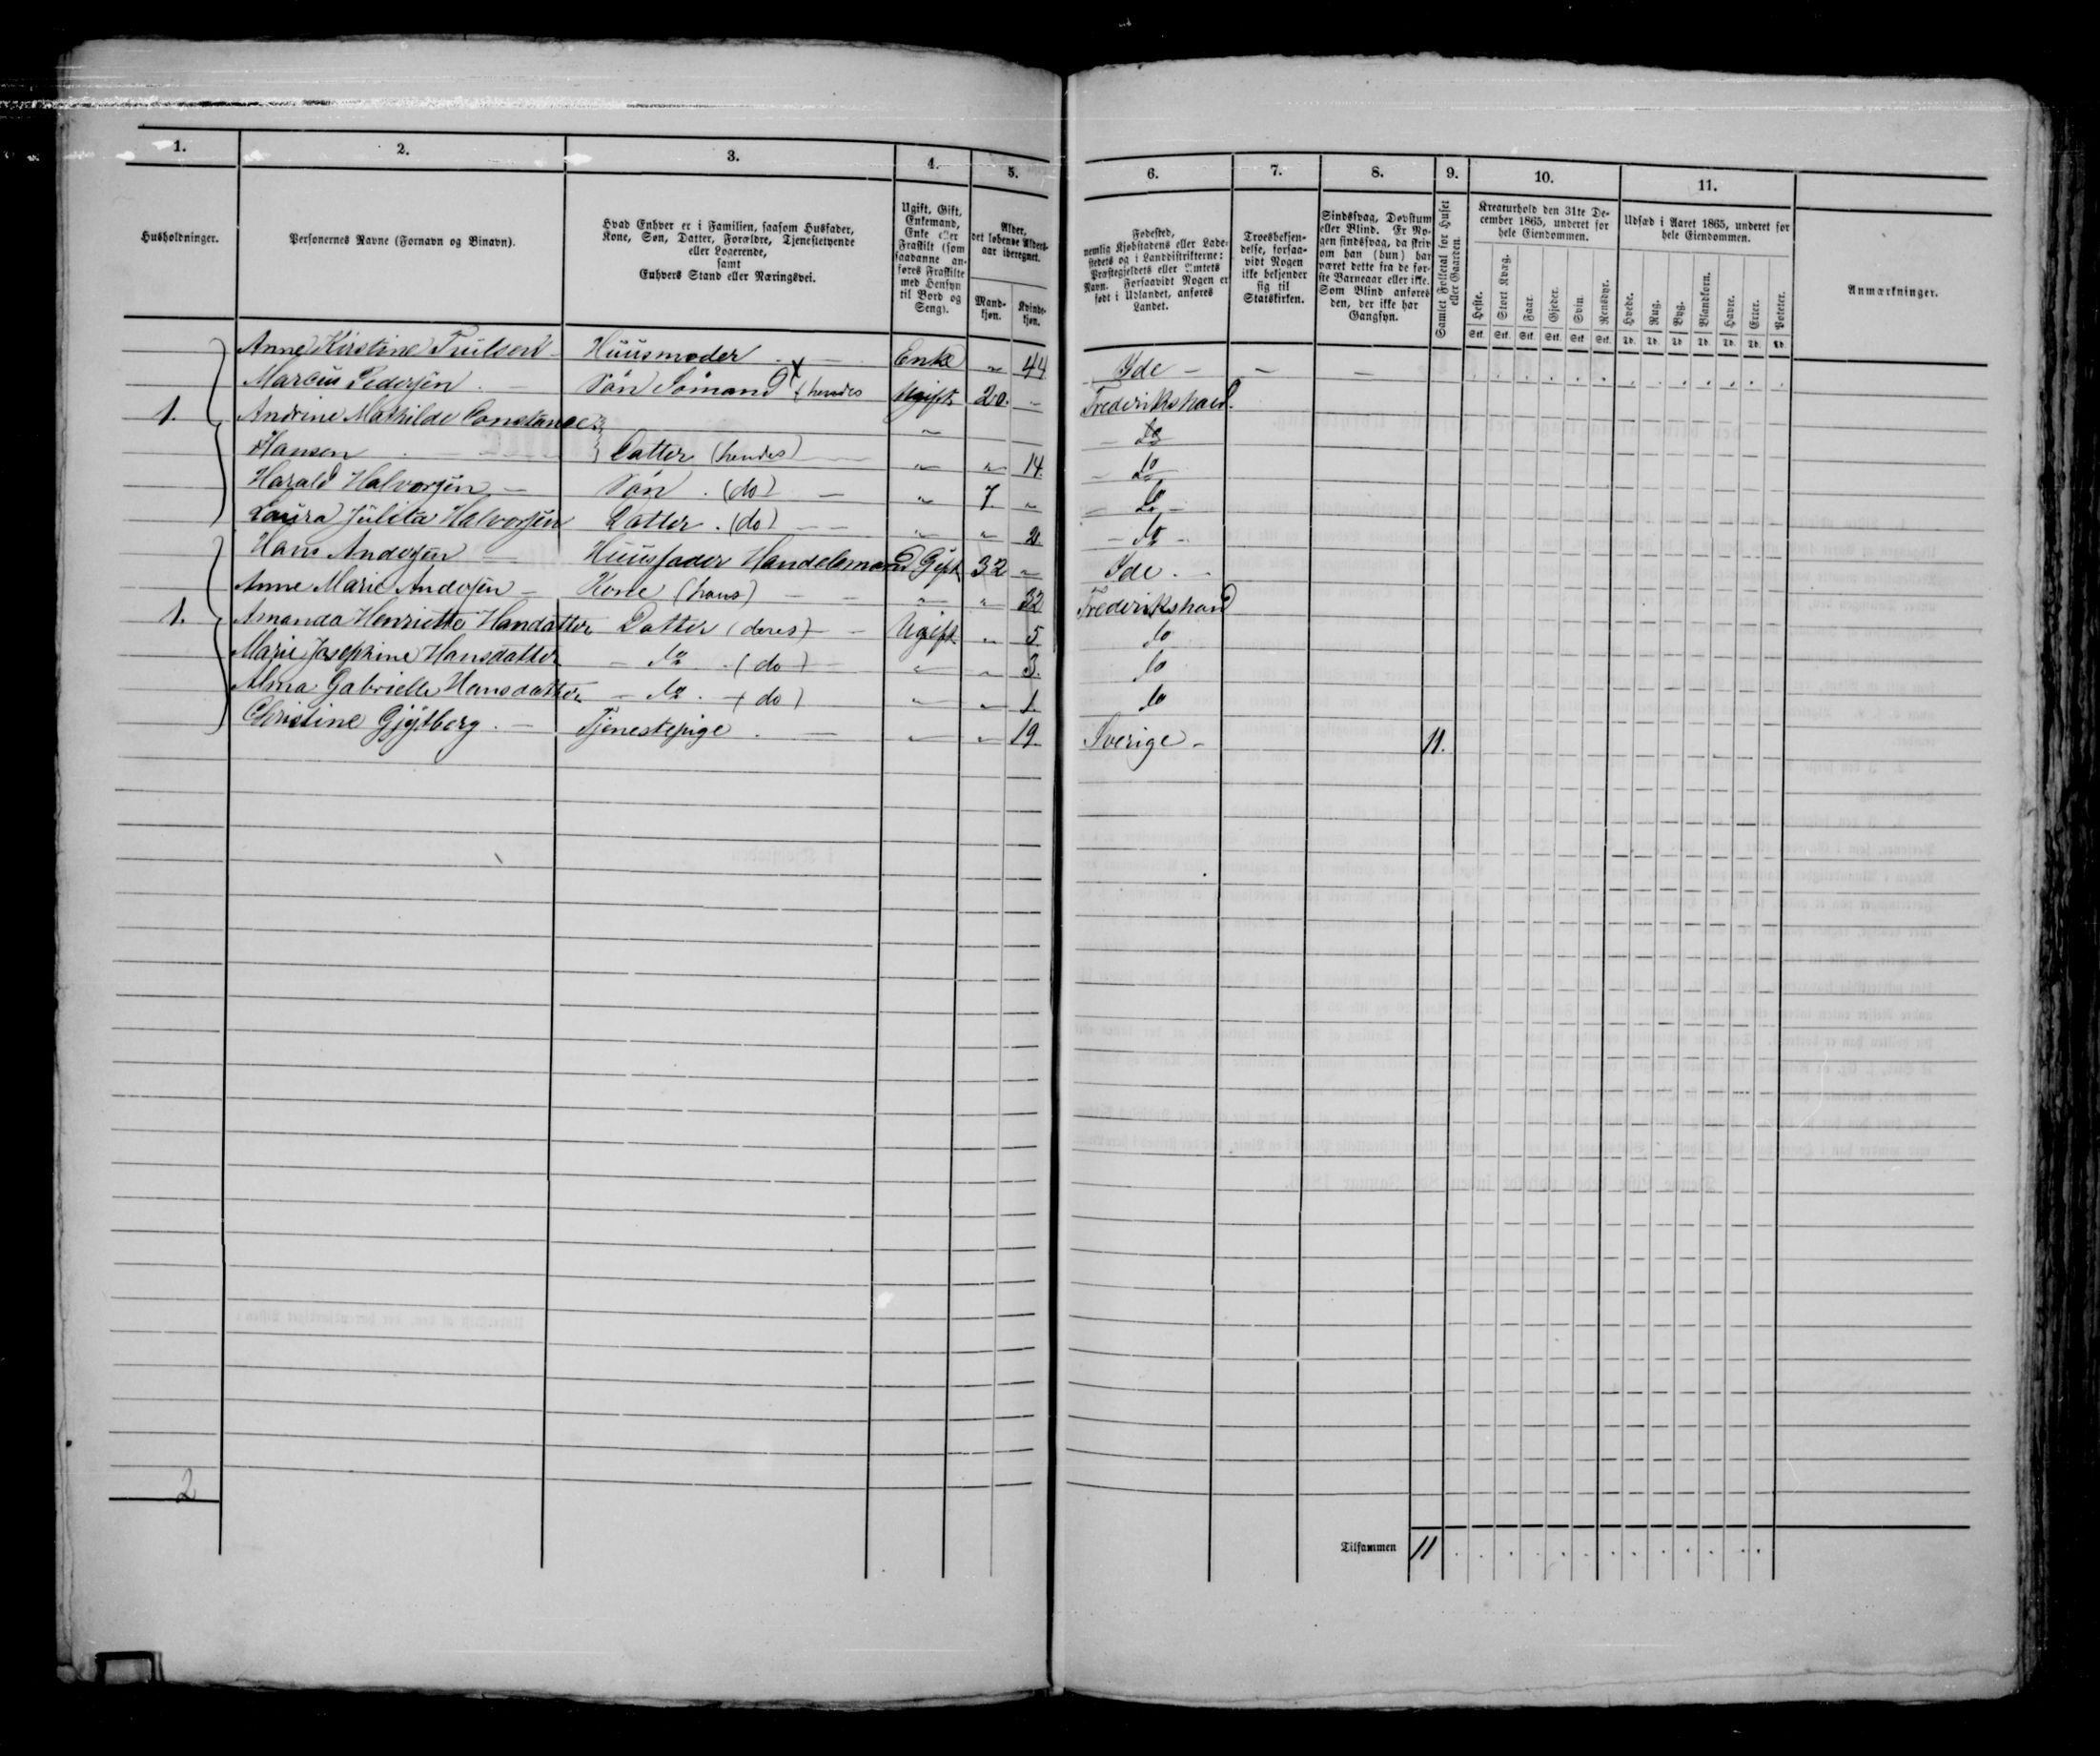 1. 2. 3. 4. 5. 6. 7. 8. 9. 10. 11.
Husholdninger.
Personernes Navne (Fornavn og Binavn).
Hvad Enhver er i Familien, saasom Husfader,
Kone, Søn, Datter, Forældre, Tjenestetyende
eller Logerende,
samt
Enhvers Stand eller Næringsvei.
Ugift, Gift,
Enkemand,
Enke eller
Fraskilt (som
saadanne an-
føres Fraskilte
med Hensyn
til Bord og
Seng).
Alder,
det løbende Alders-
aar iberegnet.
Mand-
kjøn.
Kvinde-
kjøn.
Fødested,
nemlig Kjøbstadens eller Lade-
stedets og i Landdistrikterne:
Præstegjeldets eller Amtets
Navn. Forsaavidt Nogen er
født i Udlandet, anføres
Landet.
Troesbekjen-
delse, forsaa-
vidt Nogen
ikke bekjender
sig til
Statskirken.
Sindssvag, Døvstum
eller Blind. Er No-
gen sindssvag, da skriv
om han (hun) har
været dette fra de før-
ste Barneaar eller ikke.
Som Blind anføres
den, der ikke har
Gangsyn.
Samlet Folketal for Huset
eller Gaarden.
Kreaturhold den 31te De-
cember 1865, underet for
hele Eiendommen.
Heste. Stort Kvæg. Faar. Gjeder. Svin. Rensdyr.
Stk. Stk. Stk. Stk. Stk. Stk.
Udsæd i Aaret 1865, underet for
hele Eiendommen.
Hvede. Rug. Byg. Blandkorn. Havre. Erter. Poteter.
Td. Td. Td. Td. Td. Td. Td.
Anmærkninger.
Anne Kirstine Truilsen - Huusmoder - Enke " 44 Ide - - -
Marcus Pedersen - Søn Sømand x (hendes Ugift 20. - Frederikshald.
1. Andrine Mathilde Constance " - do
Hansen Datter (hendes) " " 14. - do
Harald Halvorsen - Søn . (do) - " 7. " - do -
Laura Julita Halvorsen Datter . (do) - - " " 2. - do -
Hans Andersen - Huusfader Handelsmand Gift 32 " Ide. -
Anne Marie Andersen - Kone (hans) - - " " 32 Frederikshald
1. Amanda Henriette Handatter Datter (deres) - - Ugift " 5 do
Marie Josephine Hansdatter - do . (do) - " " 3. do
Alma Gabrielle Hansdatter - do . - (do) " " 1. do
Christine Gjytberg. - Tjenestepige . - " " 19. Sverige - 11.
2
Tilsammen 11